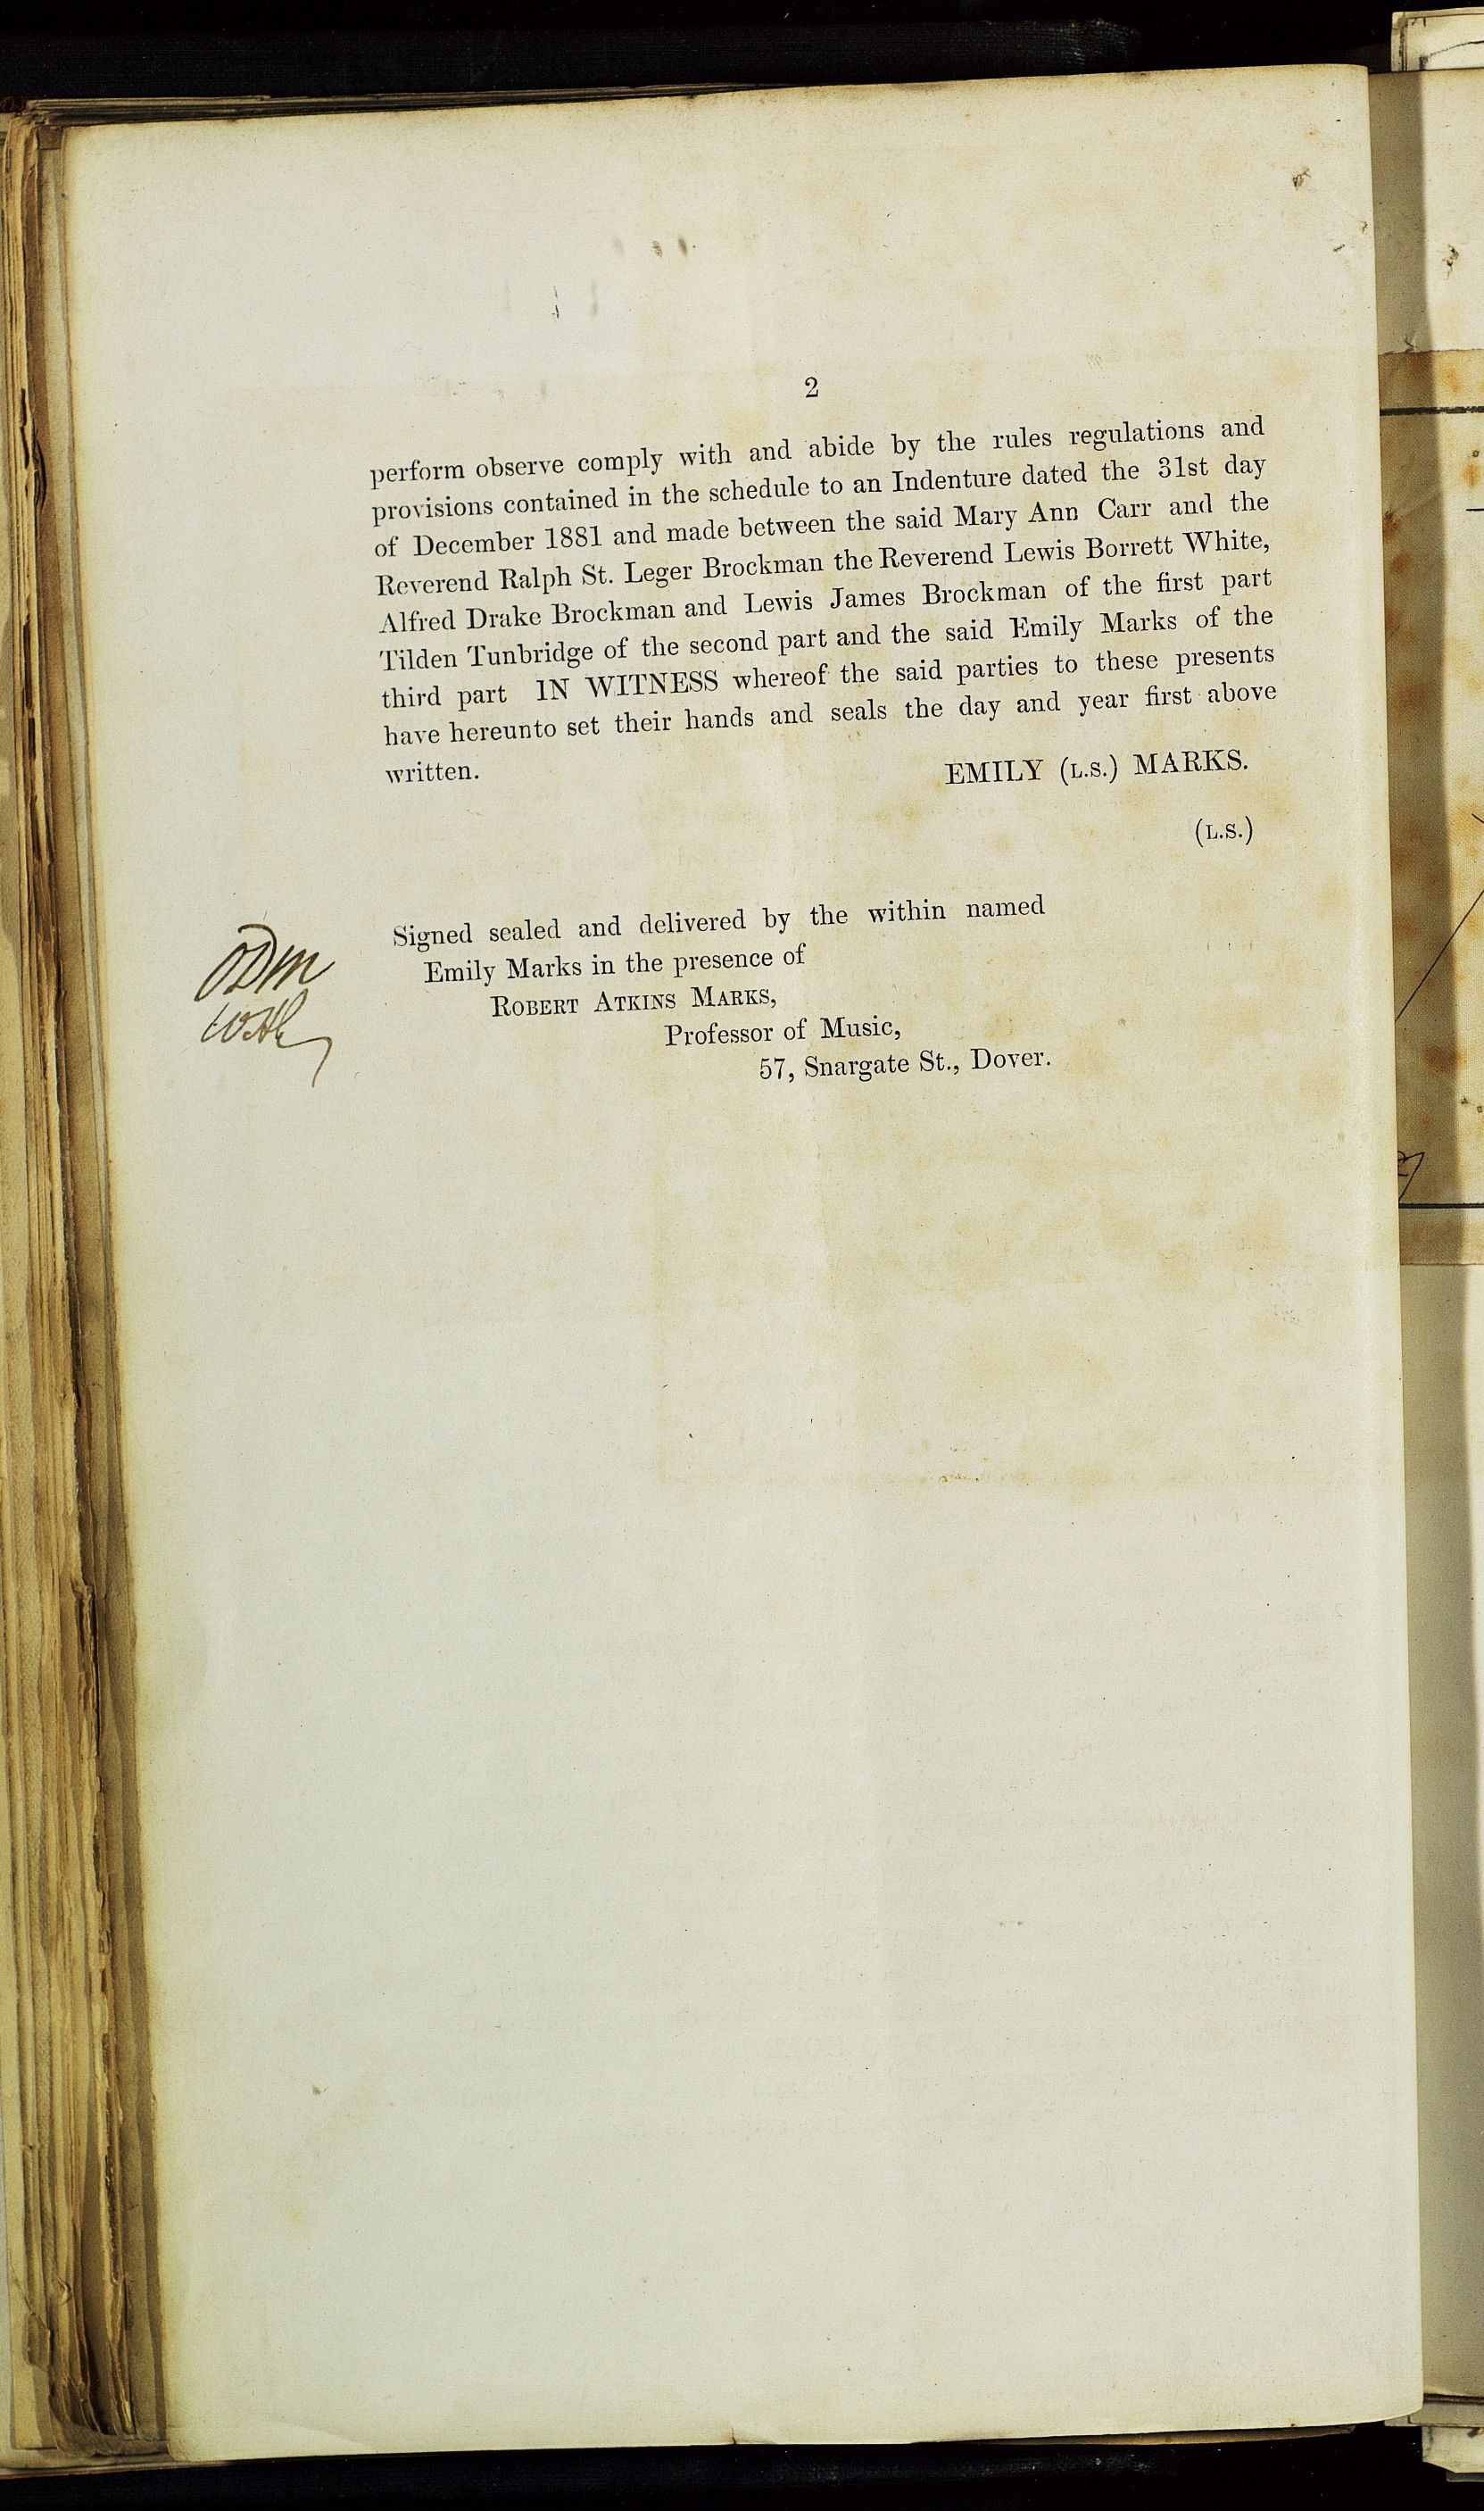 2
perform observe comply with and abide by the rules regulations and
provisions contained in the schedule to an Indenture dated the 31st day
of December 1881 and made between the said Mary Ann Carr and the
Reverend Ralph St. Leger Brockman the Reverend Lewis Borrett White,
Alfred Drake Brockman and Lewis James Brockman of the first part
Tilden Tunbridge of the second part and the said Emily Marks of the
third part IN WITNESS whereof the said parties to these presents
have hereunto set their hands and seals the day and year first above
written.
EMILY (L.S.) MARKS.
(L.S.)
Signed sealed and delivered by the within named
Emily Marks in the presence of
ROBERT ATKINS MARKS,
Professor of Music,
57, Snargate St., Dover.